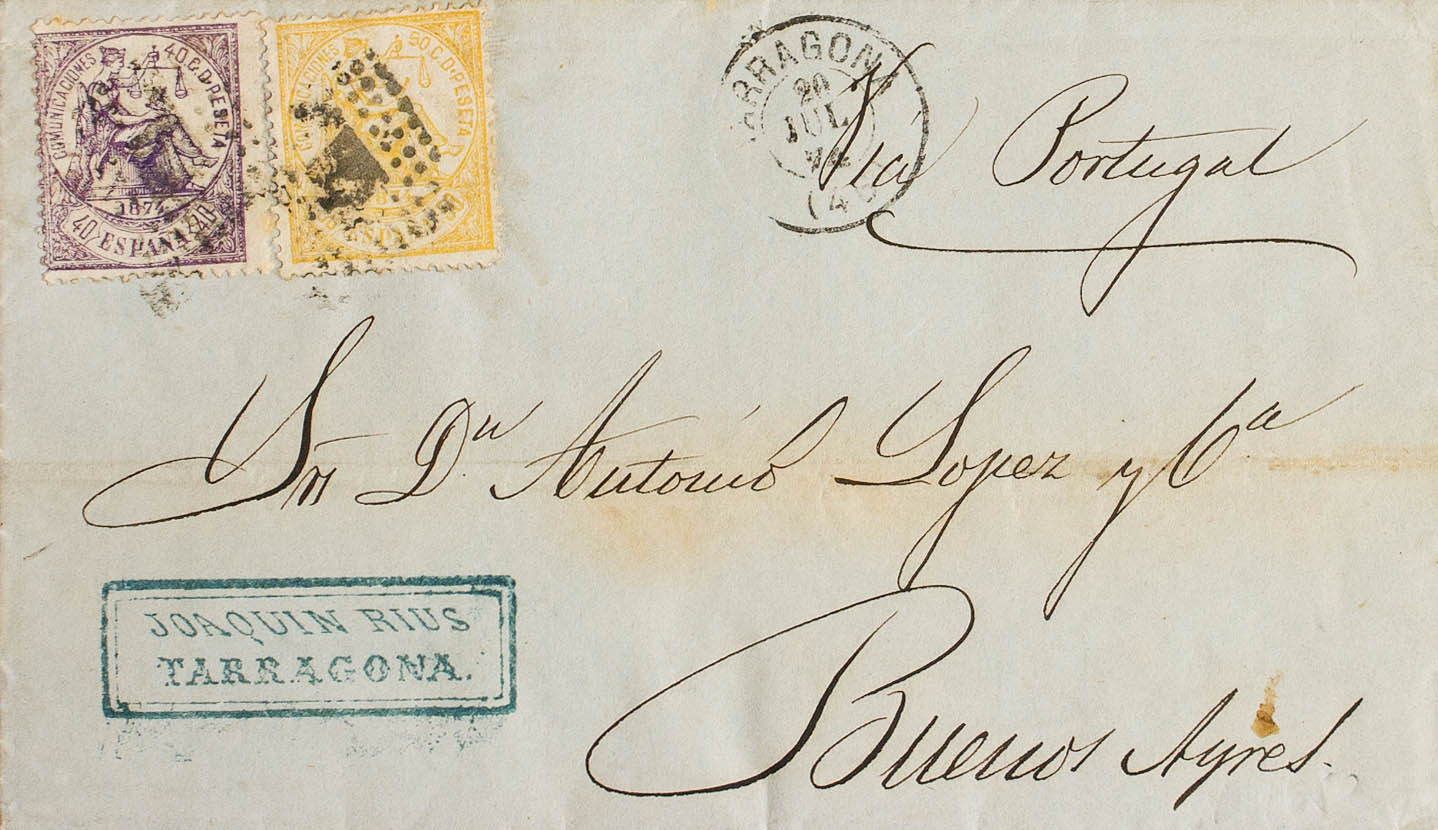 COMUNICACIONES 40 C. D PESETA
1874
40 ESPAÑA 40
50 C. D PESETA
TARRAGONA
20
JUL
74
Via Portugal
Sr Dn Antonio Lopez y Ca
JOAQUIN RIUS
TARRAGONA.
Buenos Ayres.